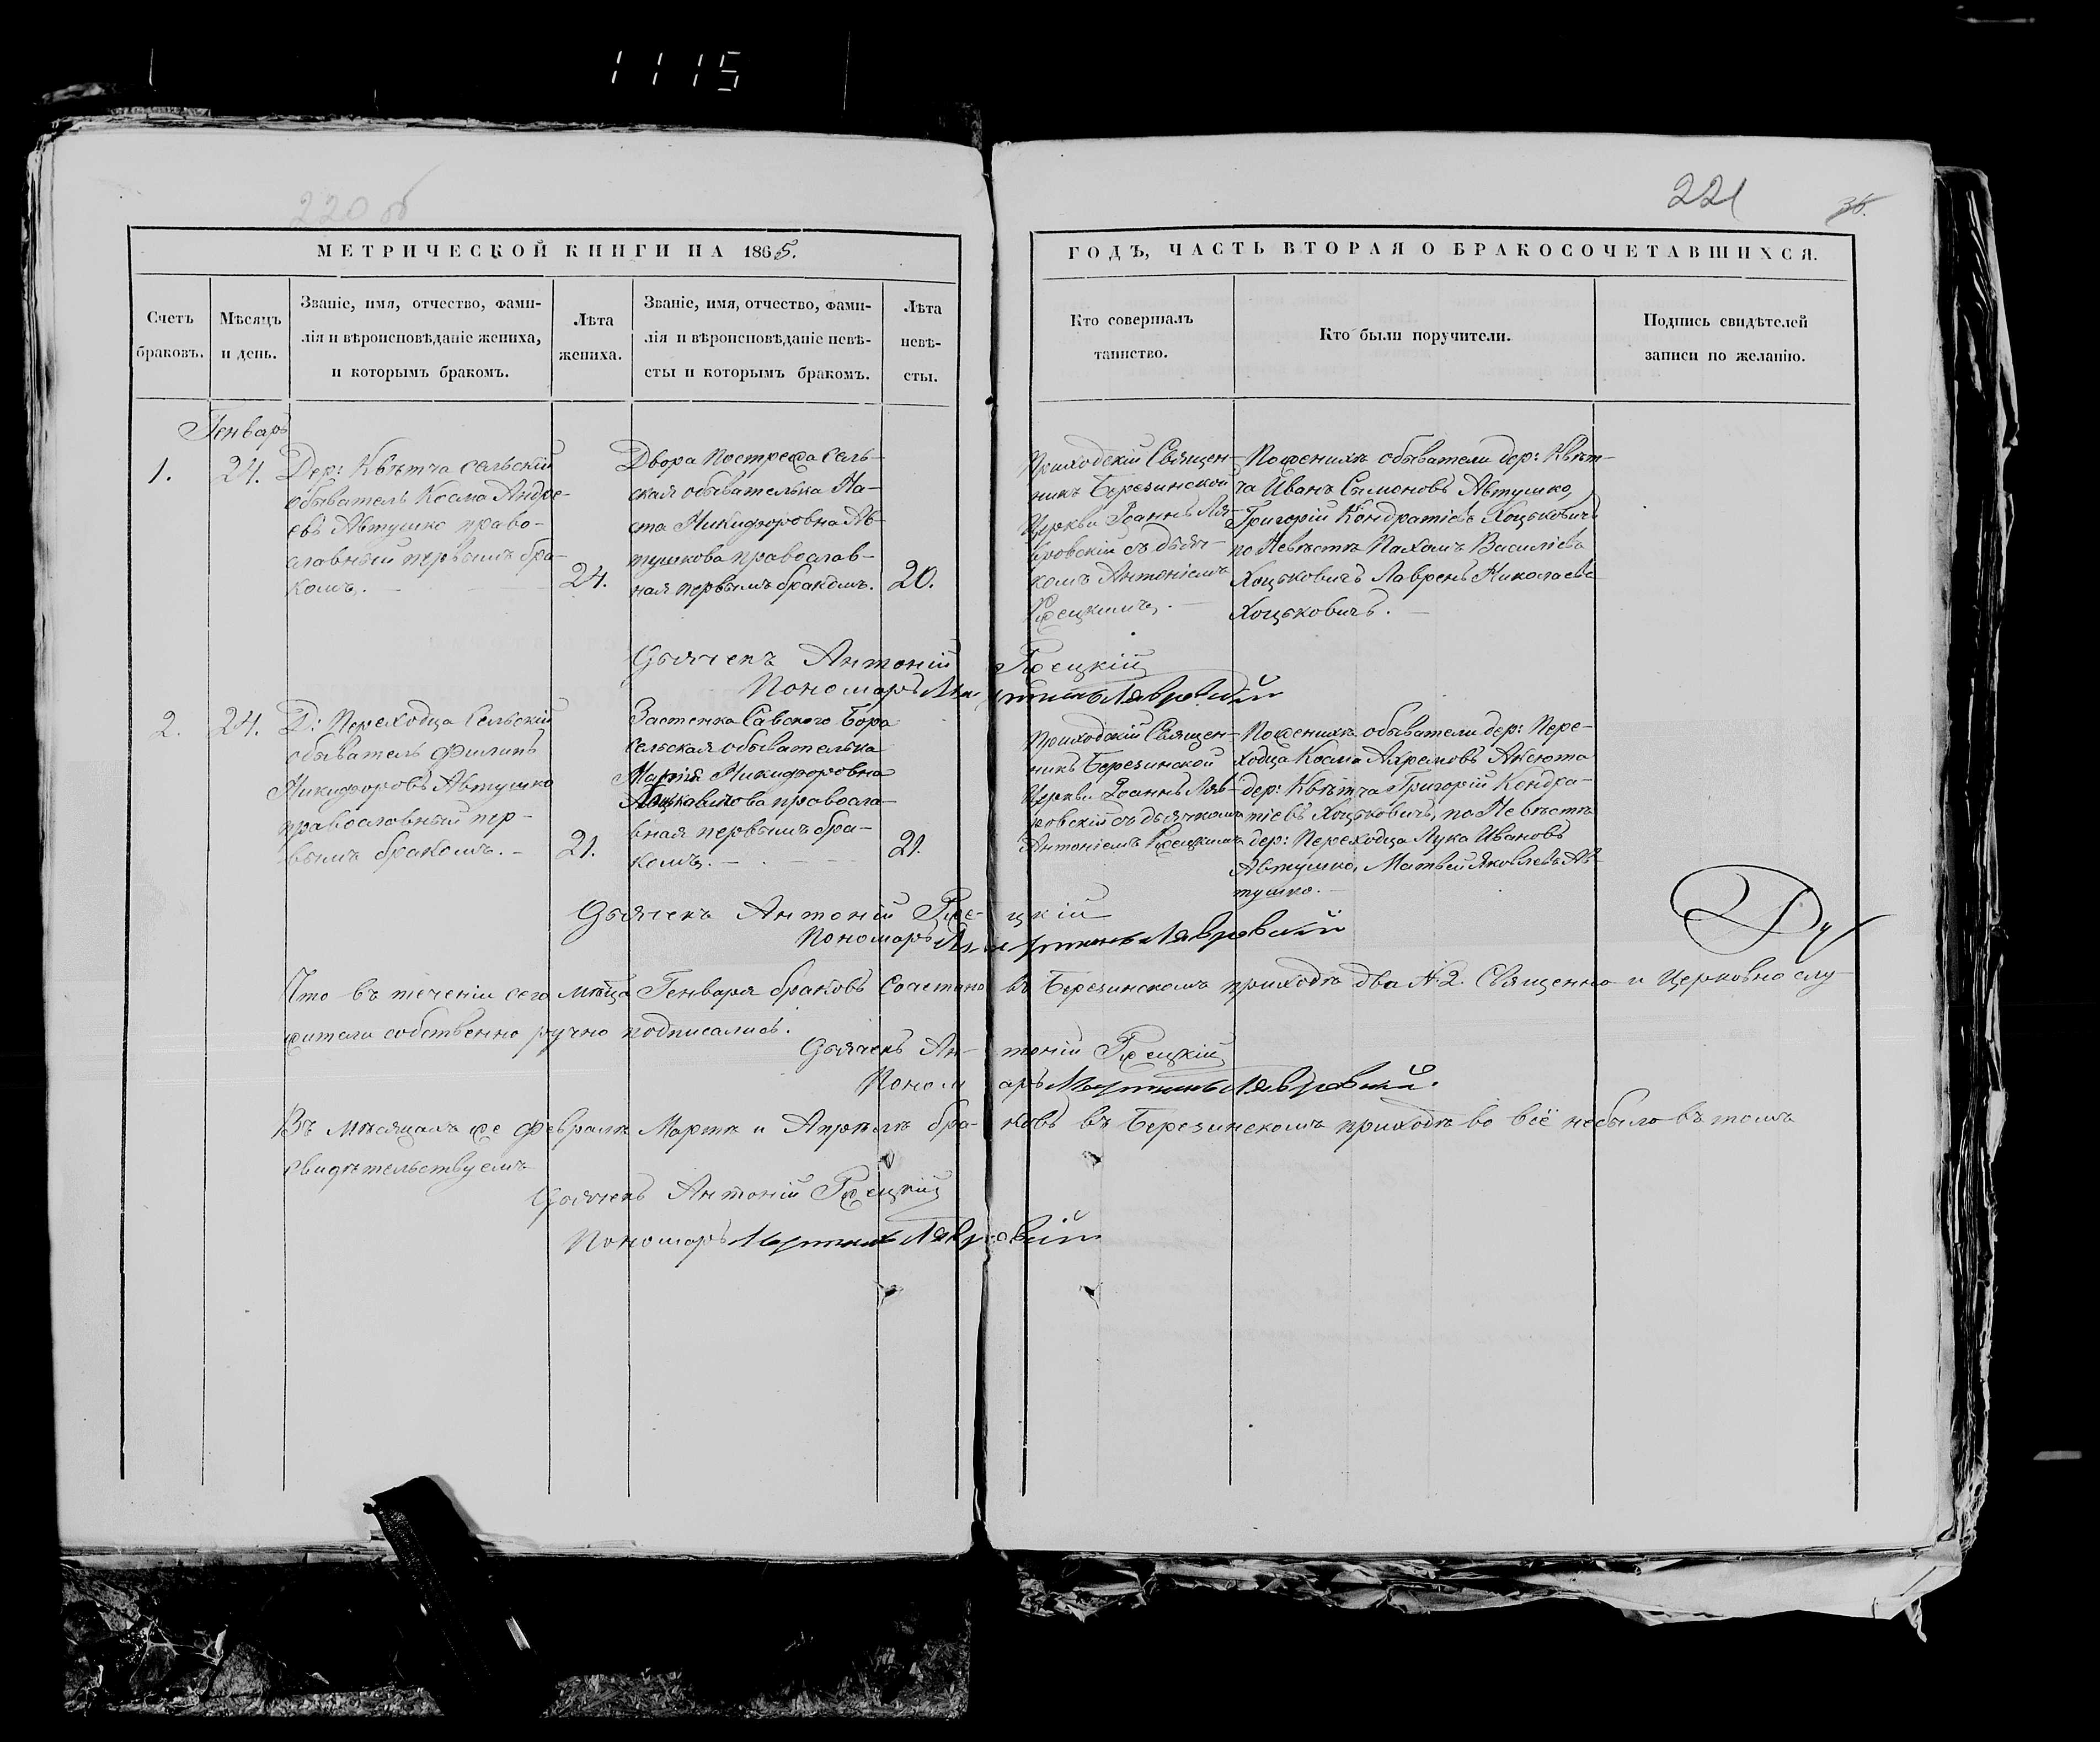 1115
220 об
221
36.
МЕТРИЧЕСКОЙ КНИГИ НА 1865.
ГОДЪ, ЧАСТЬ ВТОРАЯ О БРАКОСОЧЕТАВШИХСЯ.
Счетъ
браковъ.
Мѣсяцъ
и день.
Званіе, имя, отчество, фами-
лія и вѣроисповѣданіе жениха,
и которымъ бракомъ.
Лѣта
жениха.
Званіе, имя, отчество, фами-
лія и вѣроисповѣданіе невѣ-
сты и которымъ бракомъ.
Лѣта
невѣ-
сты.
Кто совершалъ
таинство.
Кто были поручители.
Подпись свидѣтелей
записи по желанію.
Генварь
1.
24.
Дер: Квѣтча сельскій
обыватель Косма Андре-
евъ Автушко право-
славный первымъ бра-
комъ.
24.
Двора Постреża Сель-
ская обывателька На-
ста Никифоровна Ав-
тушкова православ-
ная первымъ бракомъ.
20.
Приходскій Священ-
никъ Березинской
Церкви Іоаннъ Ляв-
ровскій съ дьяч-
комъ Антоніемъ
Ржецкимъ.
По женихѣ обыватели дер: Квѣт-
ча Иванъ Сымоновъ Автушко,
Григорій Кондратіевъ Хоцьковичъ
по Невѣстѣ Пахомъ Василіевъ
Хоцьковичъ Лаврень Николаевъ
Хоцьковичъ.
Дьячекъ Антоній Ржецкій
Пономарь Мартинъ Лавровскій
2.
24.
Д: Переходца Сельскій
обыватель Филипъ
Никифоровъ Автушко
православный пер-
вымъ бракомъ.
21.
Застенка Савского Бора
сельская обывателька
Марія Никифоровна
православ-
вная первымъ бра-
комъ.
21.
Приходскій Священ-
никъ Березинской
Церкви Іоаннъ Ляв-
ровскій съ дьячкомъ
Антоніемъ Ржецкимъ
По женихѣ обыватели дер: Пере-
ходца Косма Ахремовъ Аксюта
дер: Квѣтча Григорій Кондра-
тіевъ Хоцьковичъ, по Невѣстѣ
дер: Переходца Лука Ивановъ
Автушко, Матвей Яковлевъ Ав-
тушко.
Дьячекъ Антоній Ржецкій
Пономарь Мартинъ Лавровскій
Что въ теченіи сего мѣсца Генваря браковъ Сочетано въ Березинскомъ приходѣ два №2. Священно и Церковно слу-
жители собственно ручно подписались.
Дьячекъ Антоній Ржецкій
Пономарь Мартинъ Лавровскій.
Въ мѣсяцахъ же Февралѣ Мартѣ и Апрѣлѣ браковъ въ Березинскомъ приходѣ во всё небыло въ томъ
свидѣтельствуемъ
Дьячекъ Антоній Ржецкій
Пономарь Мартинъ Лавровскій